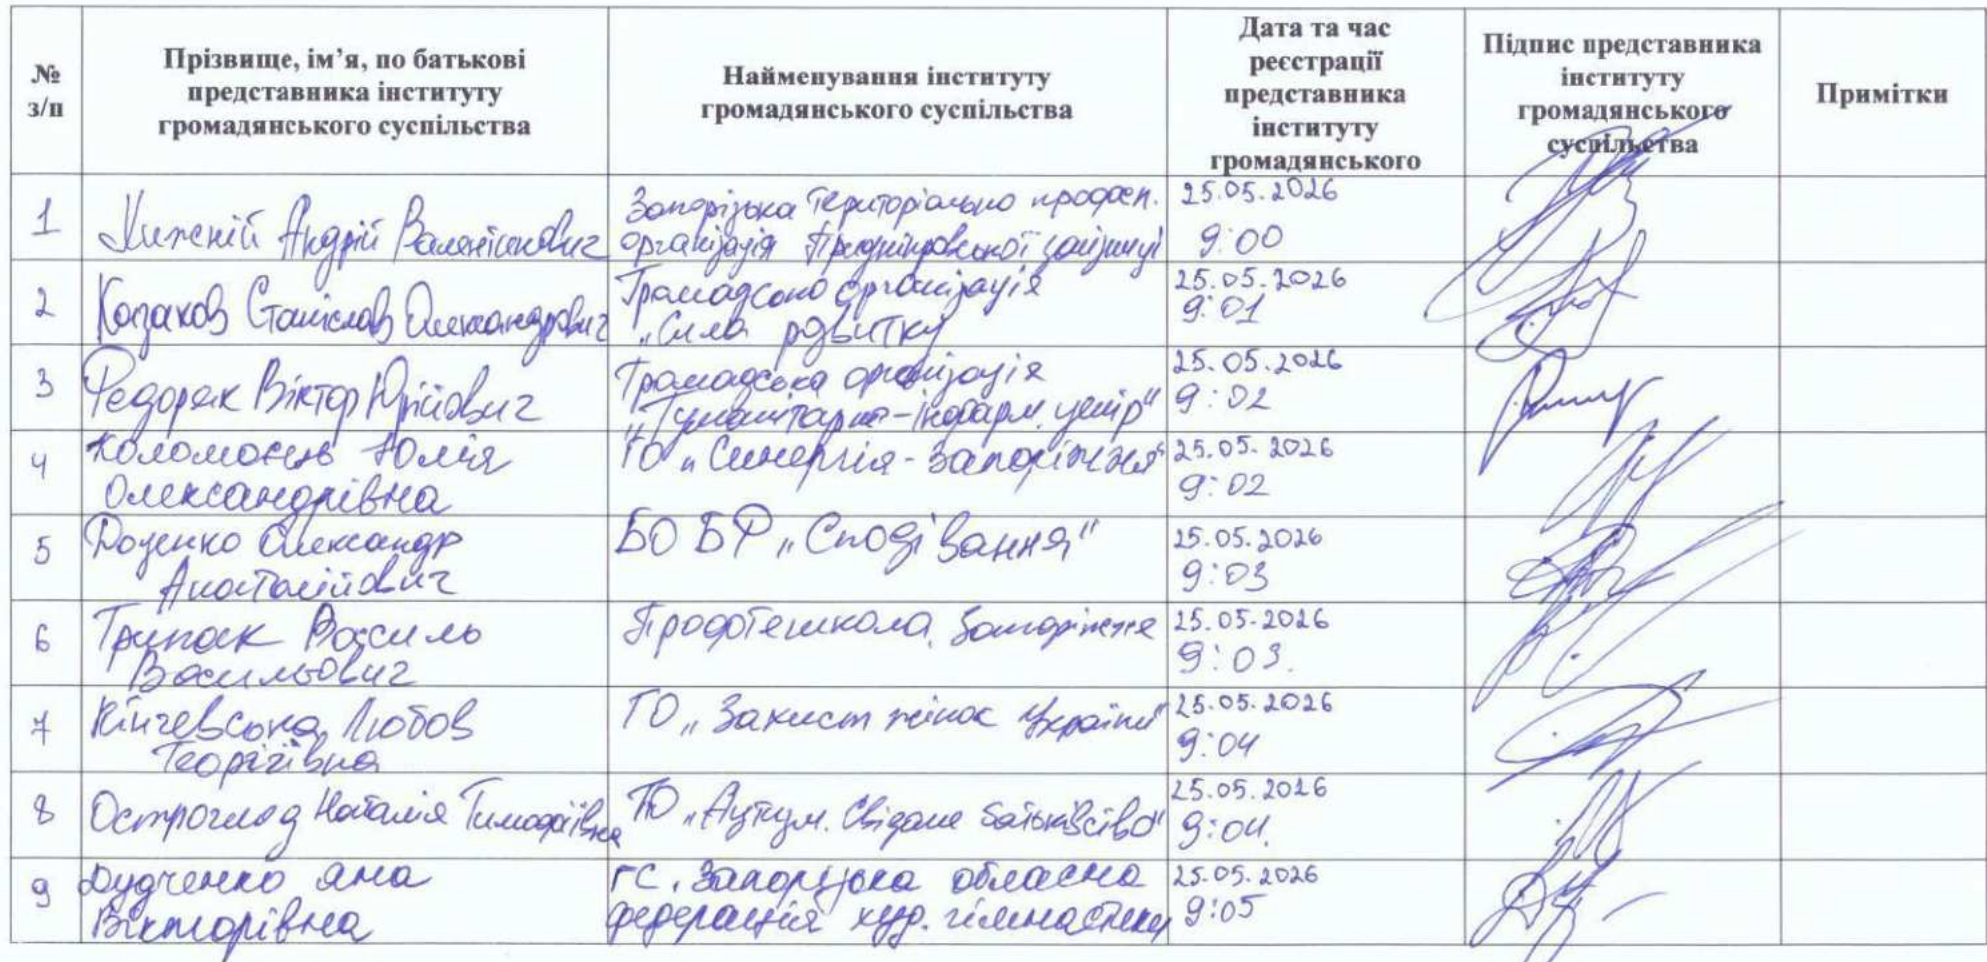 №
з/п
Прізвище, ім’я, по батькові
представника інституту
громадянського суспільства
Найменування інституту
громадянського суспільства
Дата та час
реєстрації
представника
інституту
громадянського
Підпис представника
інституту
громадянського
суспільства
Примітки
1
Андрій Валентинович
Запорізька територіально профсп.
організація Придніпровської залізниці
25.05.2026
9:00
2
Козаков Станіслав Олександрович
Громадсько організація
„Сила розвитку
25.05.2026
9:01
3
Федоряк Віктор Юрійович
Громадська організація
„Гуманітарно-інформ. центр"
25.05.2026
9:02
4
Коломоєць Юлія
Олександрівна
ГО „Синергія-Запоріжжя"
25.05.2026
9:02
5
Доценко Олександр
Анатолійович
БО БФ „Сподівання"
25.05.2026
9:03
6
Василь
Васильович
Запоріжжя
25.05.2026
9:03.
7
Кінчевська Любов
Георгіївна
ГО „Захист жінок України"
25.05.2026
9:04
8
Остроглод Наталія Тимофіївна
ГО „Аутизм. Свідоме батьківство"
25.05.2026
9:04.
9
Дудченко Яна
Вікторівна
ГС. Запорізька обласна
федерація худ. гімнастики
25.05.2026
9:05